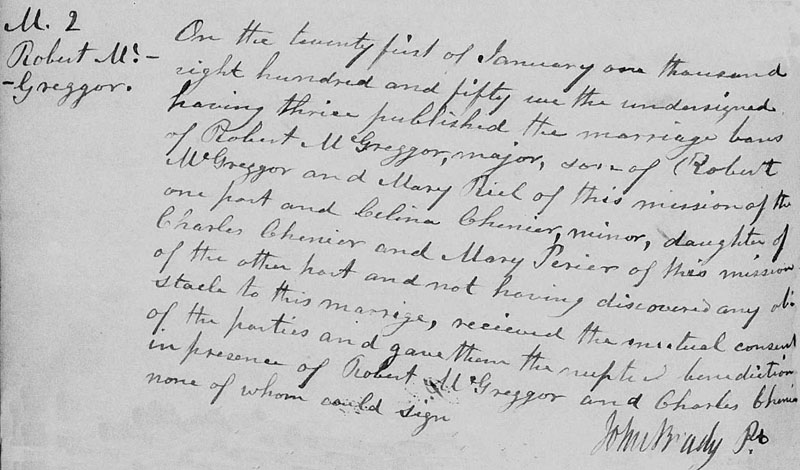 M. 2
Robert Mc.-
-Greggor.
On the twenty first of January one thousand
eight hundred and fifty we the undersigned
having thrice published the marriage bans
of Robert McGreggor, major, son of Robert
McGreggor and Mary Riel of this mission of the
one part and Celina Chenier, minor, daughter of
Charles Chenier and Mary Perier of this mission
of the other part and not having discovered any ob-
stacle to this marrige, recieved the mutual consent
of the parties and gave them the nuptial benediction
in presence of Robert McGreggor and Charles Chenier
none of whom could sign
John Brady Pt.